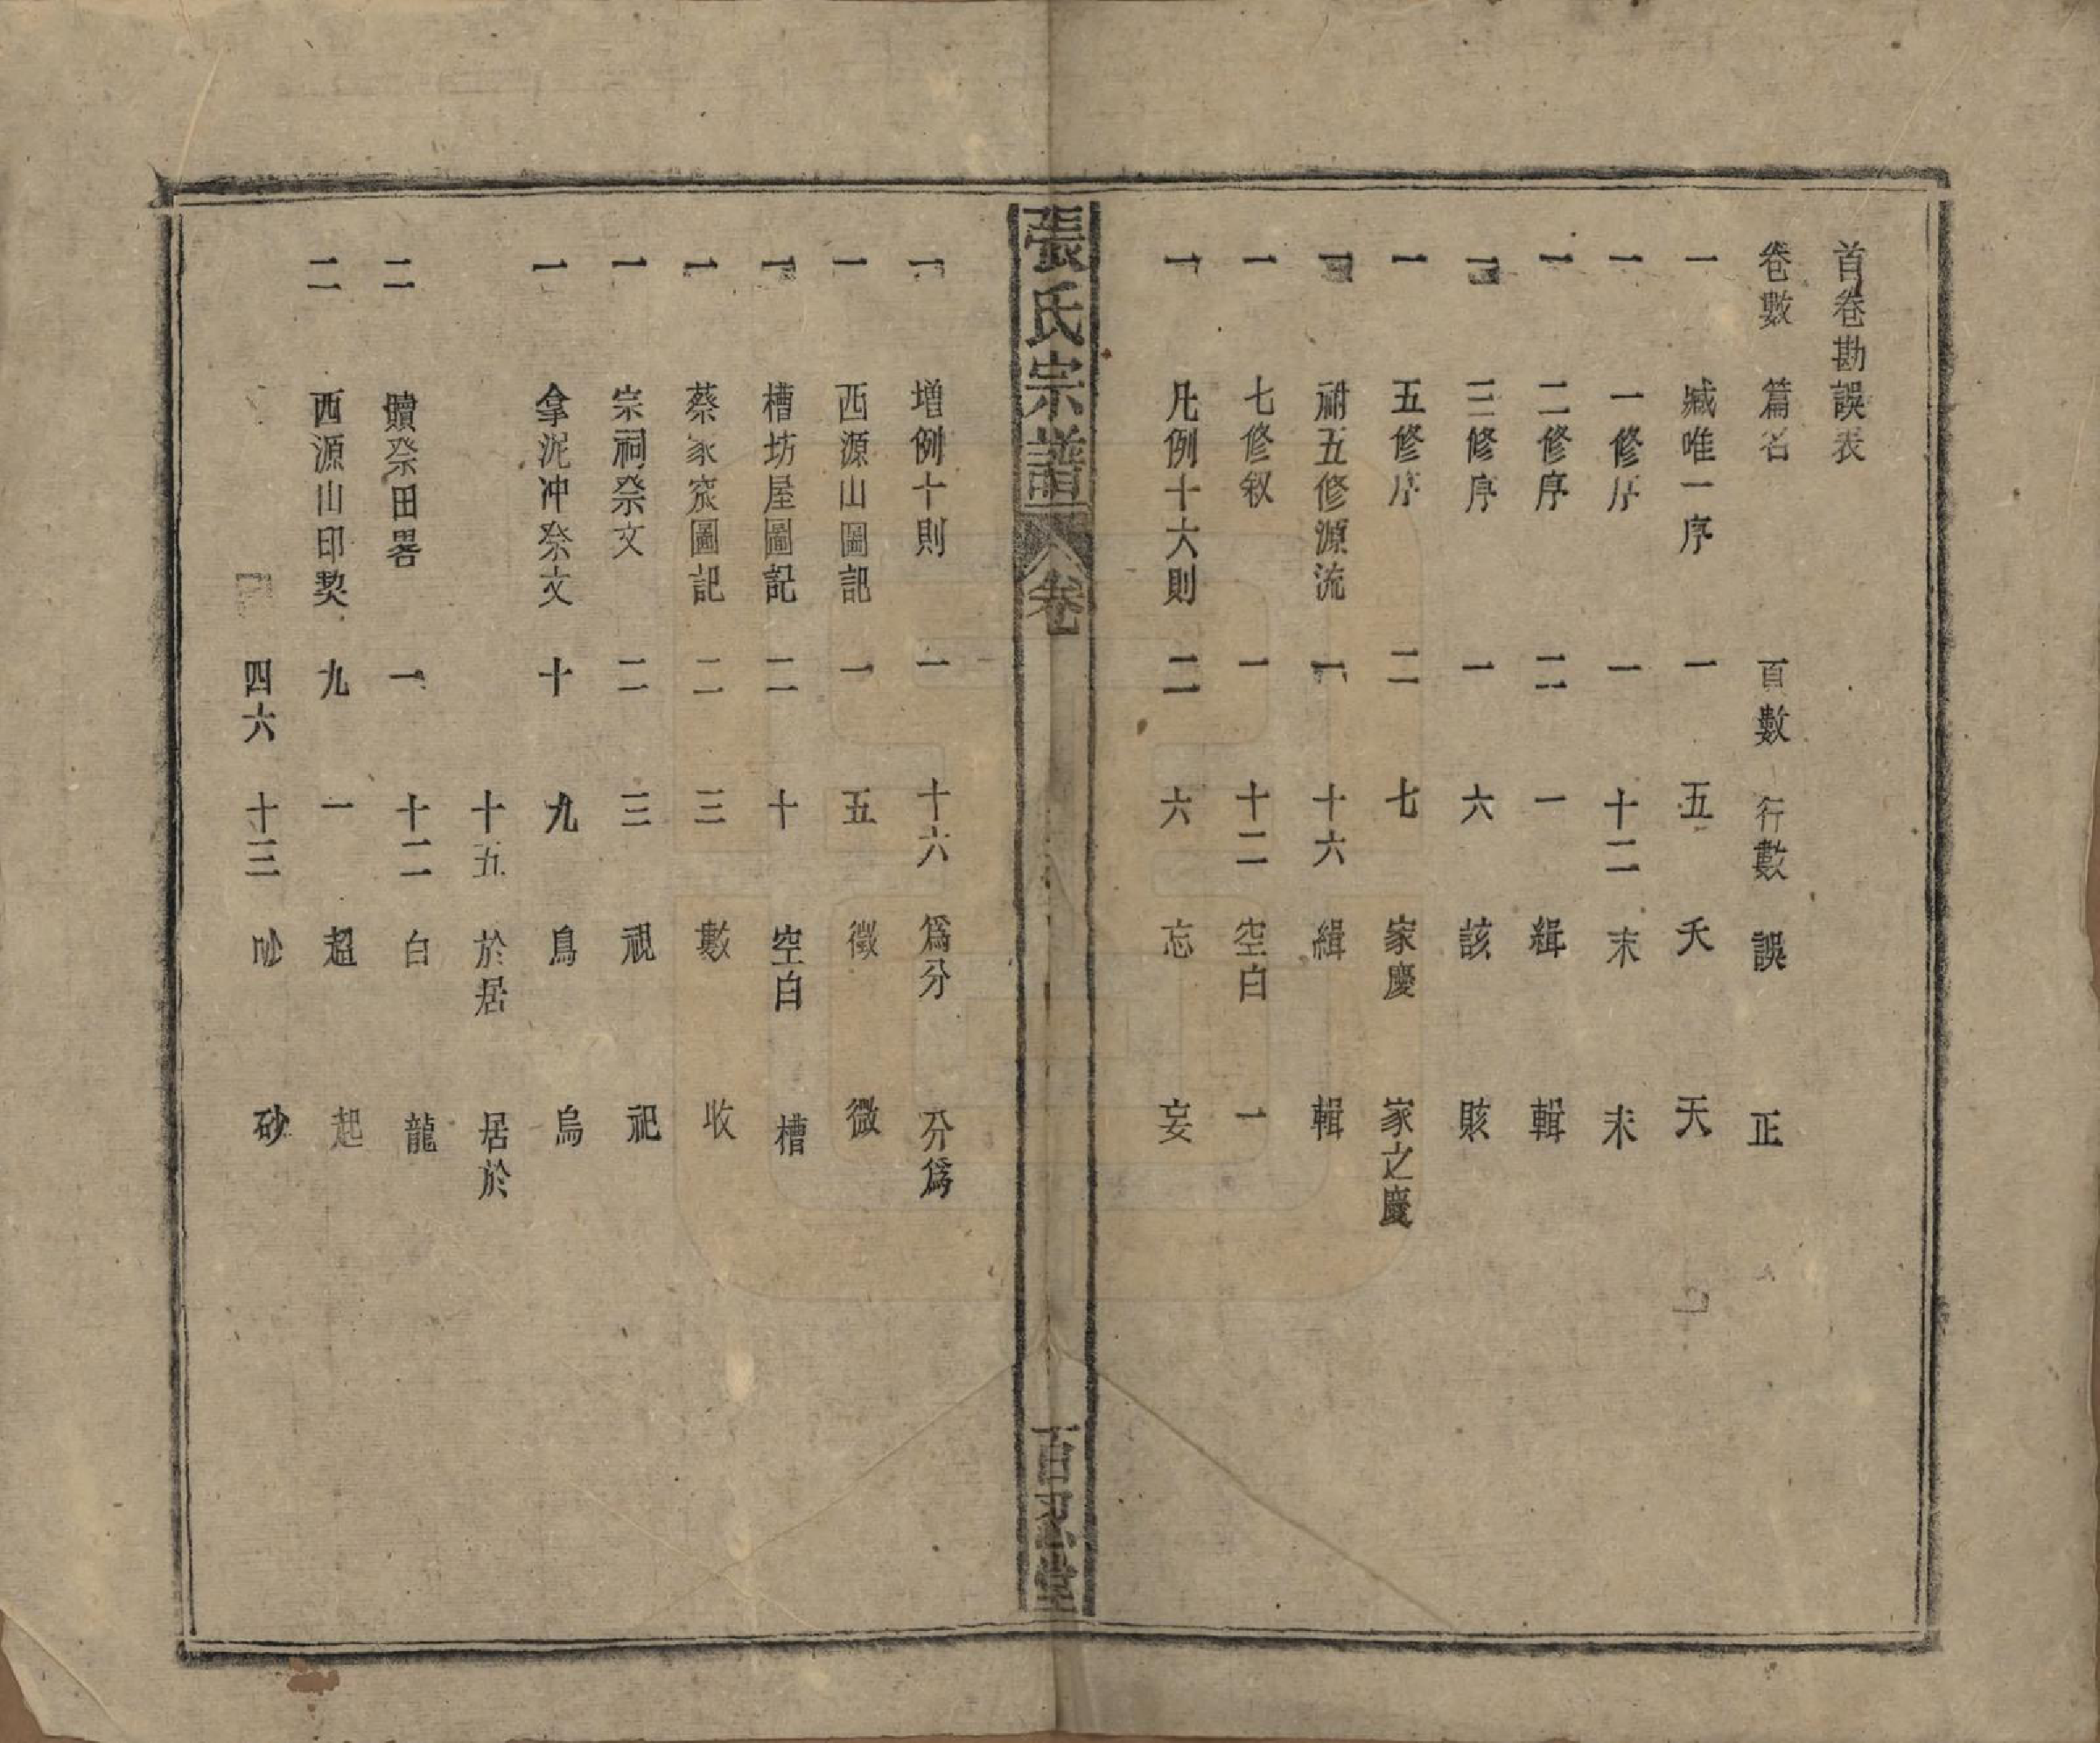 首卷勘誤表
卷數 篇名 頁數 行數 誤 正
一 臧唯一序 一 五 夭 天
一 一修序 一 十二 末 未
一 二修序 二 一 緝 輯
一 三修序 一 六 該 賅
一 五修序 二 七 家慶 家之慶
一 補五修源流 一 十六 緝 輯
一 七修叙 一 十二 空白 一
一 凡例十六則 二 六 忘 妄
張氏宗譜 卷 百忍堂
一 增例十則 一 十六 為分 分為
一 西源山圖記 一 五 徵 微
一 槽坊屋圖記 二 十 空白 槽
一 蔡家㘭圖記 二 三 數 收
一 宗祠祭文 二 三 祝 祀
一 拿泥冲祭文 十 九 鳥 烏
十五 於居 居於
二 贖祭田畧 一 十二 白 龍
二 西源山印契 九 一 超 起
四六 十三 吵 砂